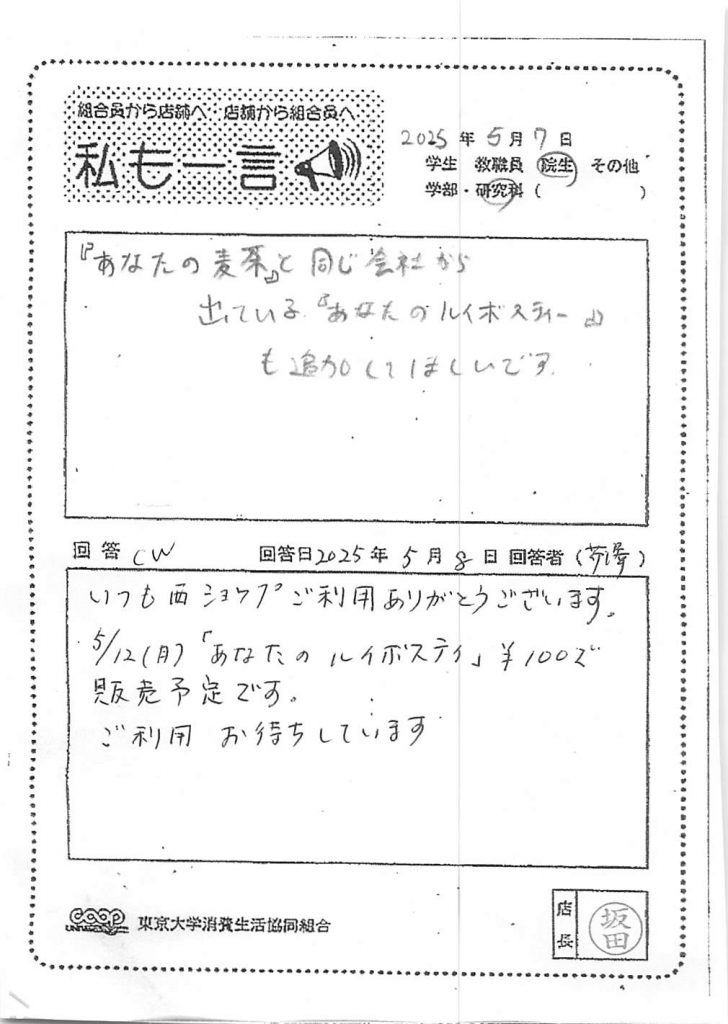 組合員から店舗へ 店舗から組合員へ
私も一言
2025年5月7日
学生 教職員 院生 その他
学部・研究科( )
『あなたの麦茶』と同じ会社から
出ている『あなたのルイボスティー』
も追加してほしいです。
回答 CW 回答日2025年5月8日 回答者(芹澤)
いつも西ショップご利用ありがとうございます。
5/12(月)「あなたのルイボスティ」¥100で
販売予定です。
ご利用 お待ちしています
coop 東京大学消費生活協同組合
店長
坂田